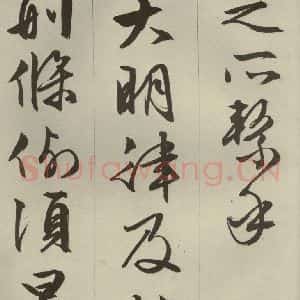 之所繫
大明律及
刑條例須
Shufawang.CN